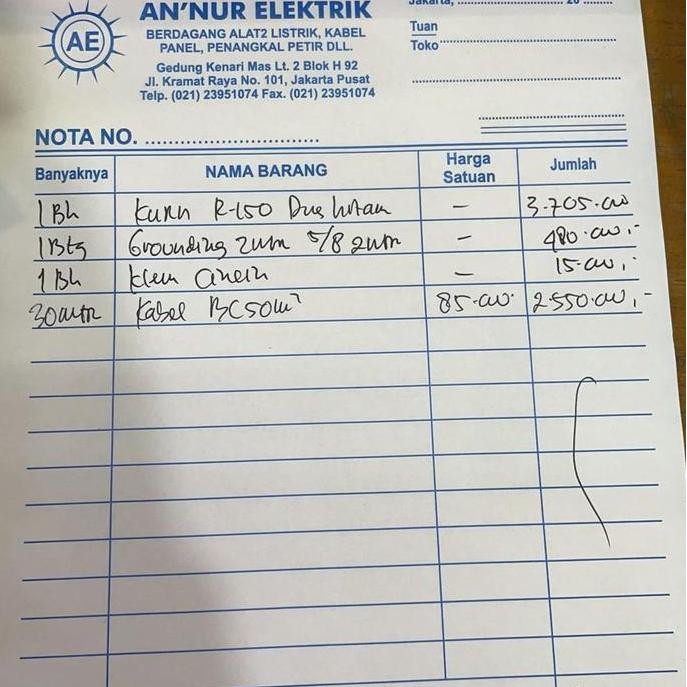 AN'NUR ELEKTRIK
BERDAGANG ALAT2 LISTRIK, KABEL
PANEL, PENANGKAL PETIR DLL.
Gedung Kenari Mas Lt. 2 Blok H 92
Jl. Kramat Raya No. 101, Jakarta Pusat
Telp. (021) 23951074 Fax. (021) 23951074
AE
Jakarta, 20
Tuan
Toko
NOTA NO.
Banyaknya NAMA BARANG Harga Satuan Jumlah
1 Bh Kurn R-150 — 3.705.000
1 Btg Grounding 5/8 — 480.000,-
1 Bh Klem — 15.000,-
30 mtr Kabel BC50m² 85.000 2.550.000,-